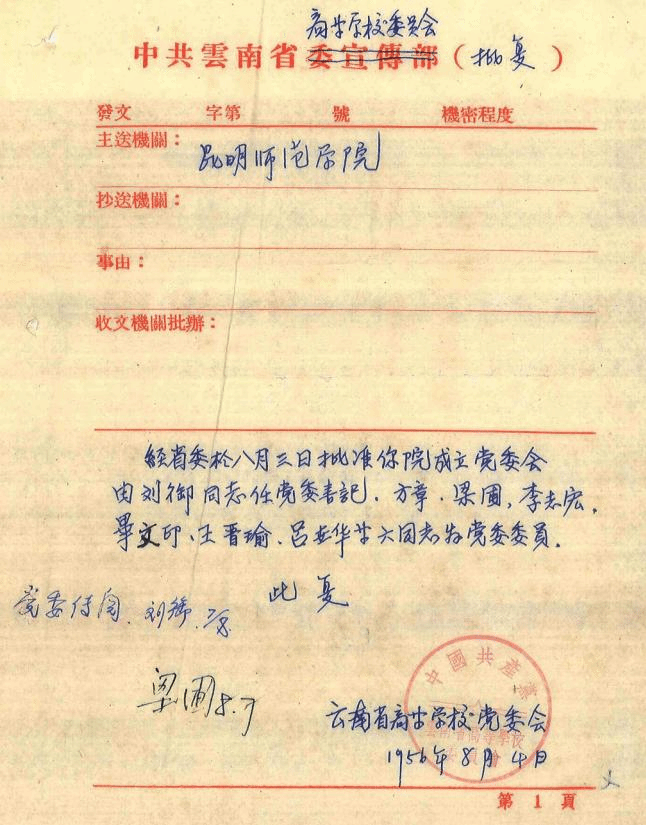 高等学校委员会
中共雲南省委宣傳部（批复）
發文 字第 號 機密程度
主送機關：
昆明师范学院
抄送機關：
事由：
收文機關批辦：
经省委於八月三日批准你院成立党委会
由刘御同志任党委書記．方章．梁圃．李志宏．
畢文印．王晋瑜．呂世华等六同志为党委委员．
此复
党委传阅．刘御
梁圃 8.7
中國共產黨
云南省高等学校党委会
雲南省高等學校
委員會
1956年8月4日
第 1 頁